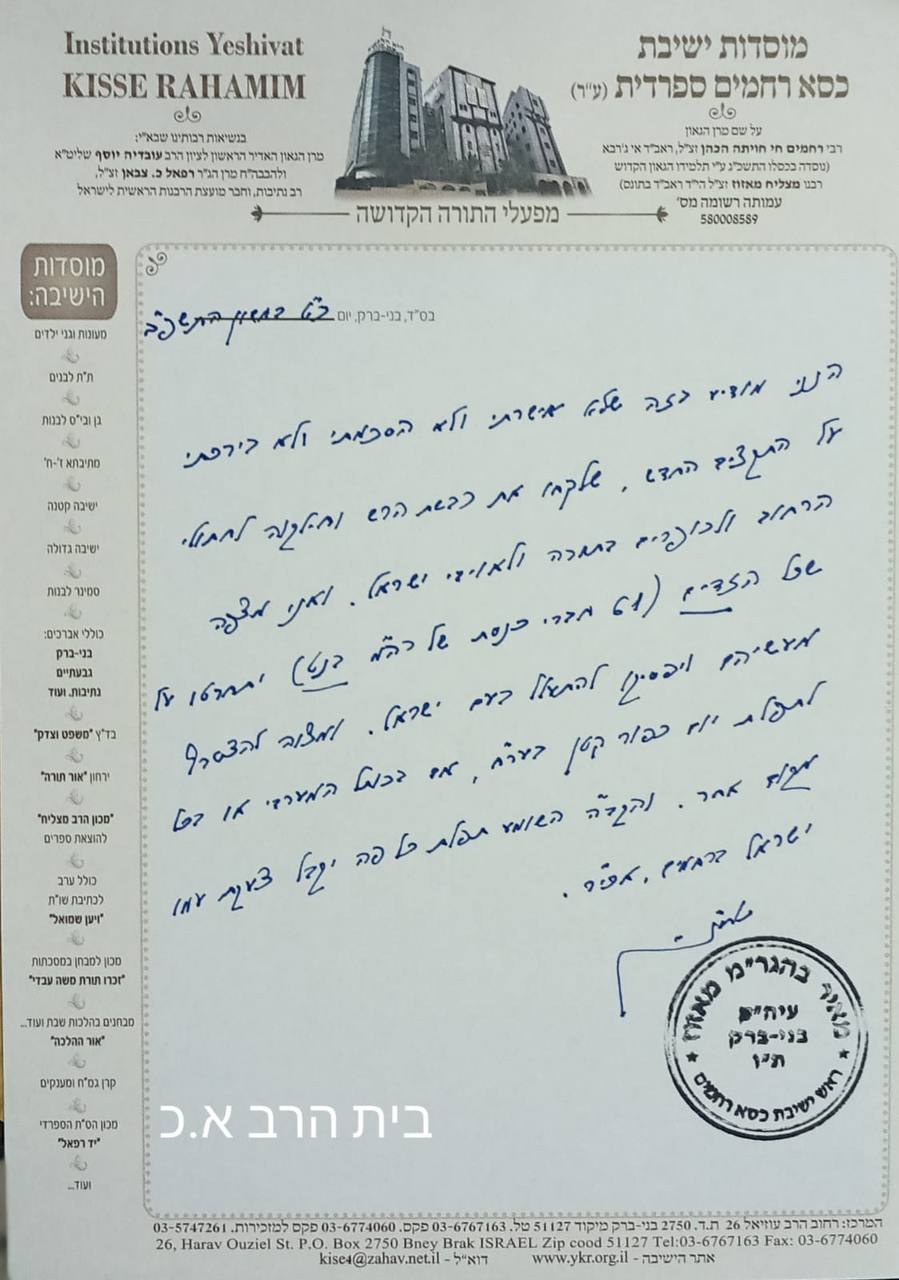 Institutions Yeshivat
KISSE RAHAMIM
מוסדות ישיבת
כסא רחמים ספרדית (ע"ר)
על שם מרן הגאון
רבי רחמים חי חויתה הכהן זצ"ל, ראב"ד אי ג'רבא
(נוסדה בכסלו התשכ"ג ע"י תלמידו הגאון הקדוש
רבנו מצליח מאזוז זצ"ל הי"ד ראב"ד בתונס)
עמותה רשומה מס'
580008589
בנשיאות רבותינו שבא"י:
מרן הגאון האדיר הראשון לציון הרב עובדיה יוסף שליט"א
ולהבבה"ח מרן הג"ר רפאל כ. צבאן זצ"ל,
רב נתיבות, וחבר מועצת הרבנות הראשית לישראל
מפעלי התורה הקדושה
מוסדות
הישיבה:
מעונות וגני ילדים
ת"ת לבנים
גן ובי"ס לבנות
מתיבתא ז'-ח'
ישיבה קטנה
ישיבה גדולה
סמינר לבנות
כוללי אברכים:
בני-ברק
גבעתיים
נתיבות. ועוד
בד"ץ "משפט וצדק"
ירחון "אור תורה"
"מכון הרב מצליח"
להוצאת ספרים
כולל ערב
לכתיבת שו"ת
"ויען שמואל"
מכון למבחן במסכתות
"זכרו תורת משה עבדי"
מבחנים בהלכות שבת ועוד...
"אור ההלכה"
קרן גמ"ח ומענקים
מכון הס"ת הספרדי
"יד רפאל"
ועוד...
בס"ד, בני-ברק, יום כ"ט בחשון התשפ"ב
הנני מודיע בזה שלא אישרתי ולא הסכמתי ולא בירכתי
על התקציב החדש, שלקחו את כבשת הרש וחילקוה לחתולי
הרחוב ולכופרים בתורה ולאויבי ישראל. ואני מצפה
שכל הזדים (61 חברי כנסת של רה"מ בנט) יתחרטו על
מעשיהם ויפסיקו להתעלל בעם ישראל. ומצוה להצטרף
לתפלת יום כפור קטן בער"ח, אם בכותל המערבי או בכל
מקום אחר. והקב"ה השומע תפלת כל פה יקבל צעקת עמו
ישראל ברחמים, אכי"ר.
מאיר בהגר"מ מאזוז
עיה"ת
בני-ברק
ת"ו
ראש ישיבת כסא רחמים
בית הרב א.כ
המרכז: רחוב הרב עוזיאל 26 ת.ד. 2750 בני-ברק מיקוד 51127 טל. 03-6767163 פקס. 03-6774060 פקס למזכירות. 03-5747261
26, Harav Ouziel St. P.O. Box 2750 Bney Brak ISRAEL Zip cood 51127 Tel:03-6767163 Fax: 03-6774060
אתר הישיבה - www.ykr.org.il דוא"ל - kise4@zahav.net.il